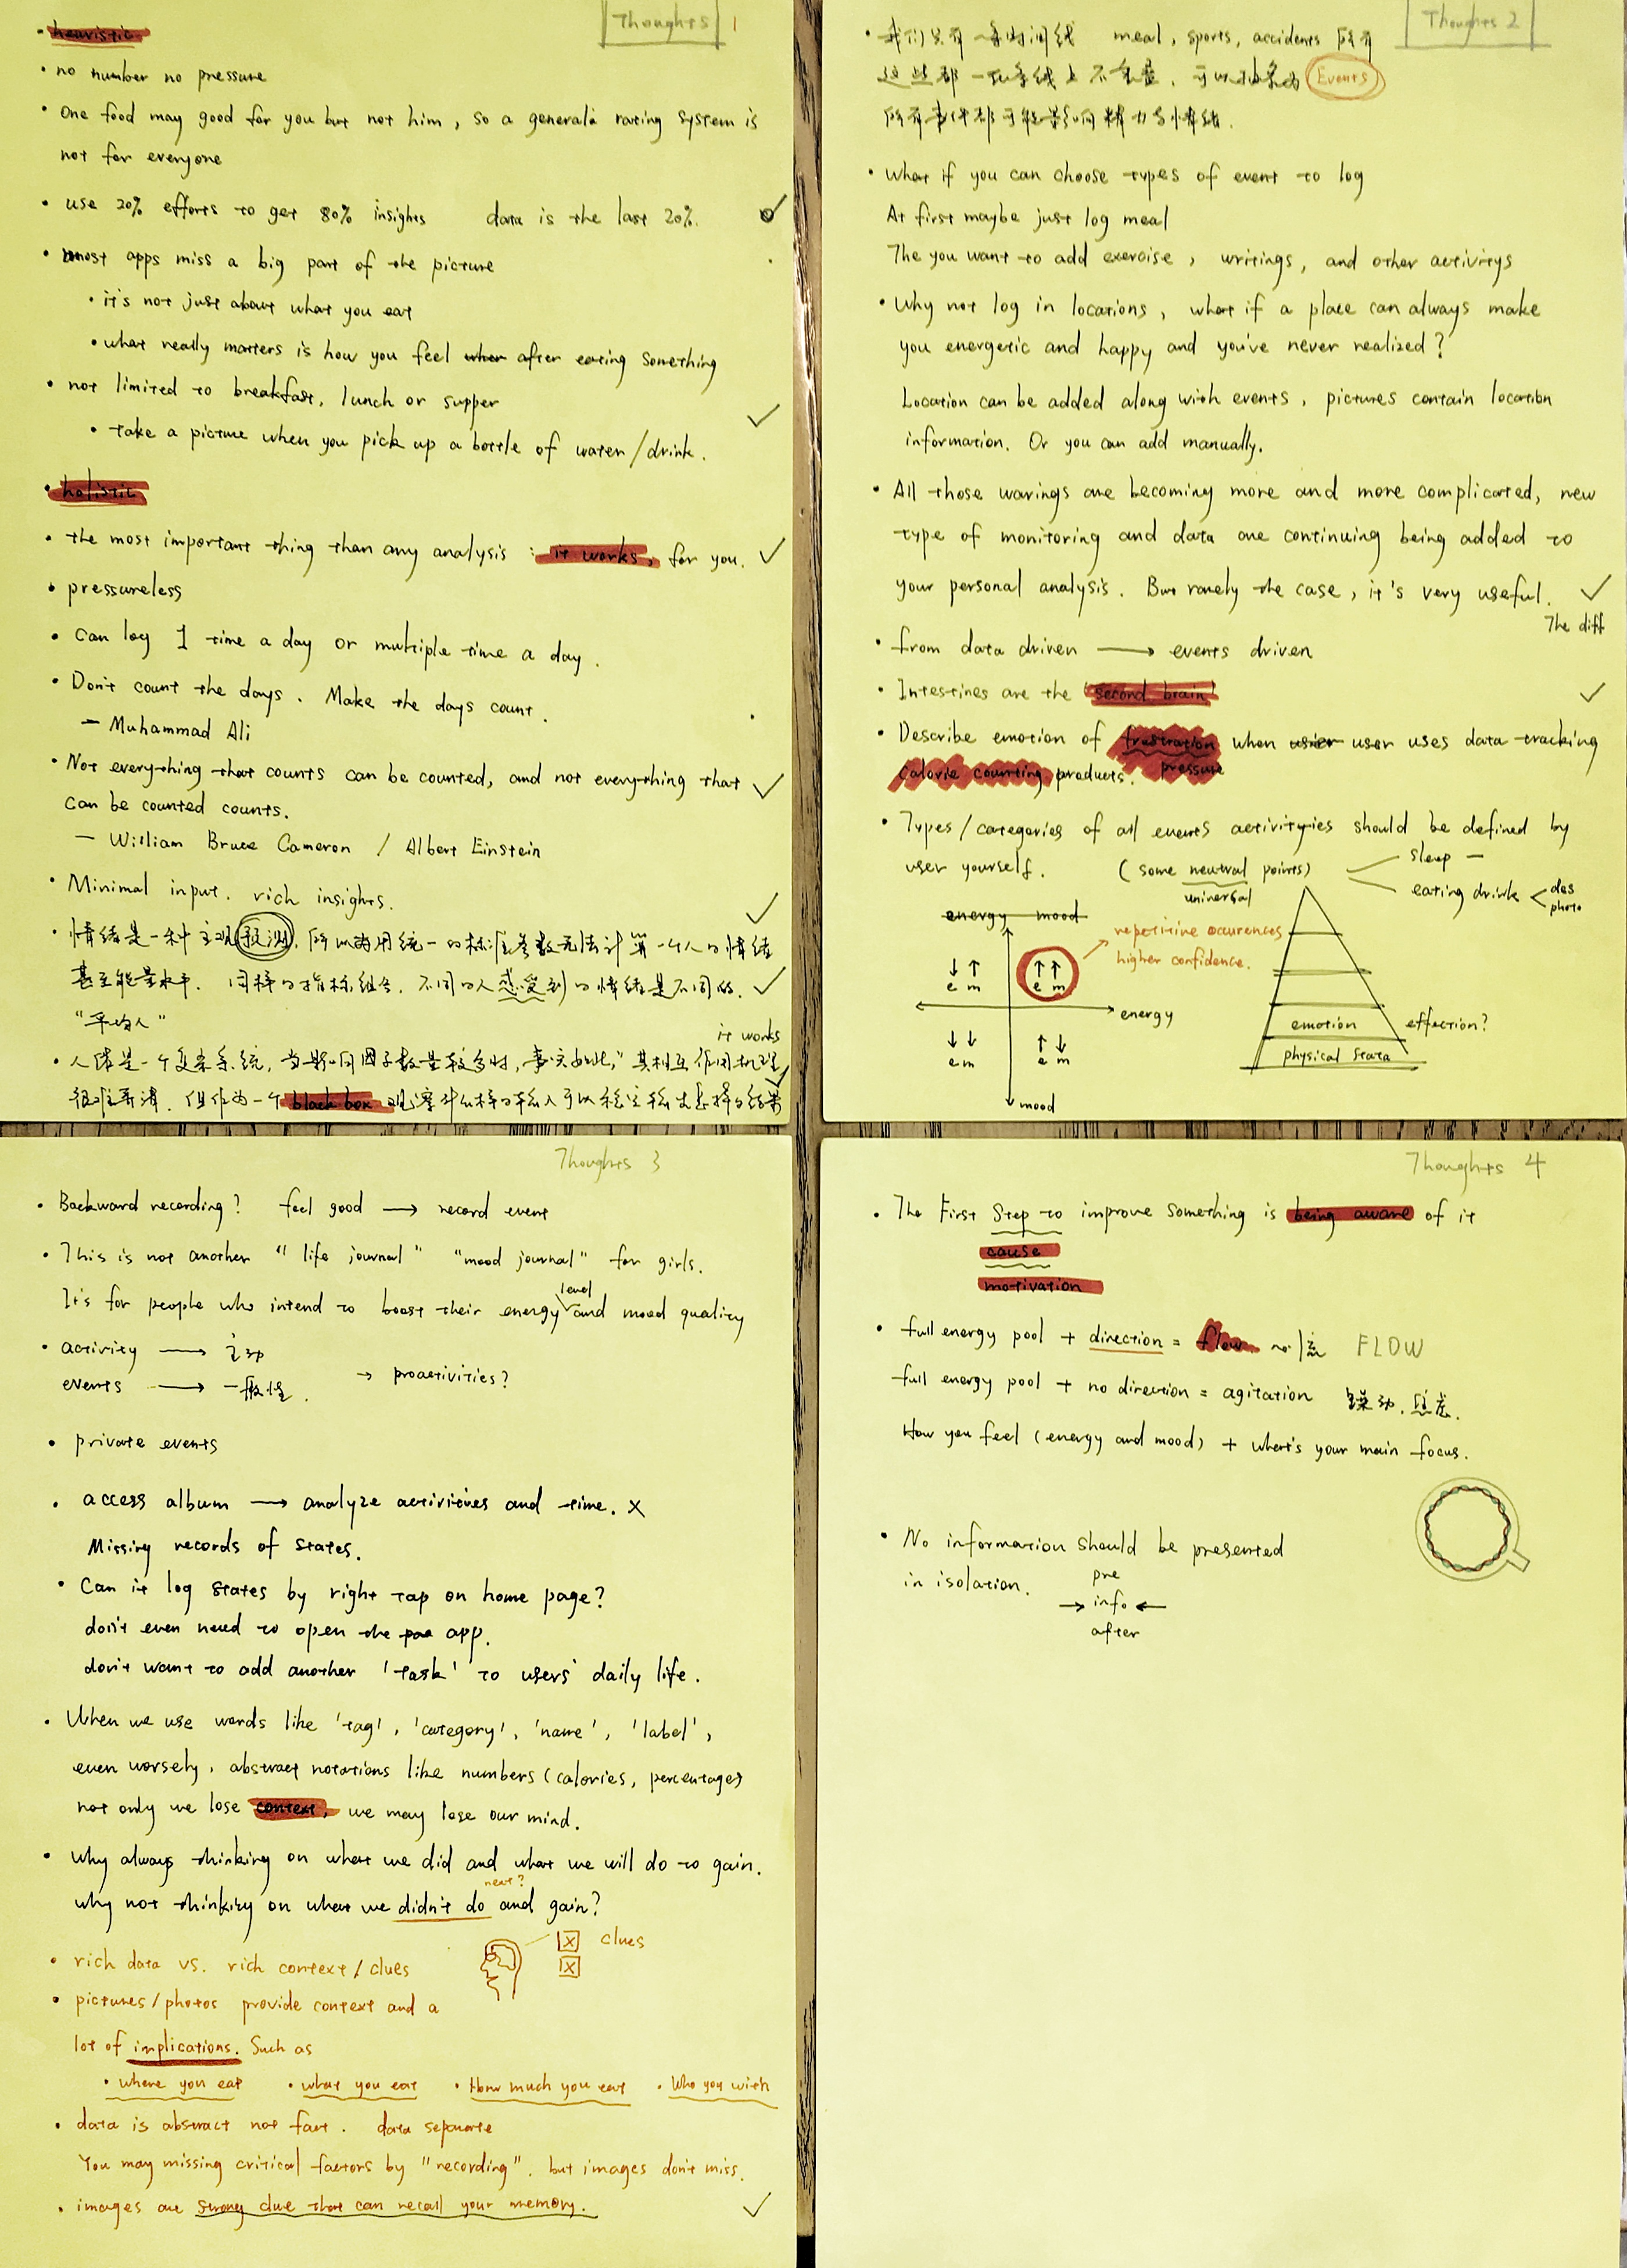 Thoughts 1
heuristic
no number no pressure
One food may good for you but not him, so a general rating system is
not for everyone
use 20% efforts to get 80% insights data is the last 20%.
most apps miss a big part of the picture
it's not just about what you eat
what really matters is how you feel when after eating something
not limited to breakfast, lunch or supper
take a picture when you pick up a bottle of water/drink.
holistic
the most important thing than any analysis : it works, for you.
pressureless
Can log 1 time a day or multiple time a day.
Don't count the days. Make the days count.
— Muhammad Ali
Not everything that counts can be counted, and not everything that
can be counted counts.
— William Bruce Cameron / Albert Einstein
Minimal input. rich insights.
情绪是一种主观预测, 所以两用统一的标准参数无法计算一个人的情绪
甚至能量水平. 同样的指标组合, 不同的人感受到的情绪是不同的.
"平均人"
it works
人体是一个复杂系统, 当影响因子数量较多时, 事实如此, 其相互作用机理
很难弄清, 但作为一个 black box 观察什么样的输入可以稳定输出怎样的结果
Thoughts 2
我们只有一条时间线 meal, sports, accidents 所有
这些都一切在线上不重叠, 可以抽象为 Events
所有事件都可能影响精力与情绪.
What if you can choose types of event to log
At first maybe just log meal
The you want to add exercise, writings, and other activitys
Why not log in locations, what if a place can always make
you energetic and happy and you've never realized?
Location can be added along with events, pictures contain location
information. Or you can add manually.
All those warings are becoming more and more complicated, new
type of monitoring and data are continuing being added to
your personal analysis. But rarely the case, it's very useful.
The diff
from data driven → events driven
Intestines are the "second brain"
Describe emotion of frustration when user user uses data tracking
calorie counting products. pressure
Types/categories of all events activityies should be defined by
user yourself. (some neutral points)
uninersal
sleep —
eating drink < des
photo
energy mood
repetitive ocurrences
higher confidence.
↓ ↑
e m
↑ ↑
e m
energy
↓ ↓
e m
↑ ↓
e m
mood
emotion
effection?
physical stata
Thoughts 3
Backward recording? feel good → record event
This is not another "life journal" "mood journal" for girls.
level
It's for people who intend to boost their energy and mood quality
activity → 主动
events → 一般性.
→ proactivities?
private events
access album → analyze activitives and time. X
Missing records of states.
Can it log states by right tap on home page?
don't even need to open the app.
don't want to add another 'task' to users' daily life.
When we use words like 'tag', 'category', 'name', 'label',
even worsely, abstract notations like numbers (calories, percentage)
not only we lose context, we may lose our mind.
Why always thinking on what we did and what we will do to gain.
next?
why not thinking on what we didn't do and gain?
rich data vs. rich context/clues
clues
pictures/photos provide context and a
lot of implications. Such as
where you eat what you eat How much you eat Who you with
data is abstract not fact. data separate
You may missing critical factors by "recording". but images don't miss.
images are strong clue that can recall your memory.
Thoughts 4
The First Step to improve something is being aware of it
cause
motivation
full energy pool + direction = flow 心流 FLOW
full energy pool + no direction = agitation 躁动. 焦虑.
How you feel (energy and mood) + what's your main focus.
No information should be presented
in isolation.
pre
→ info ←
after